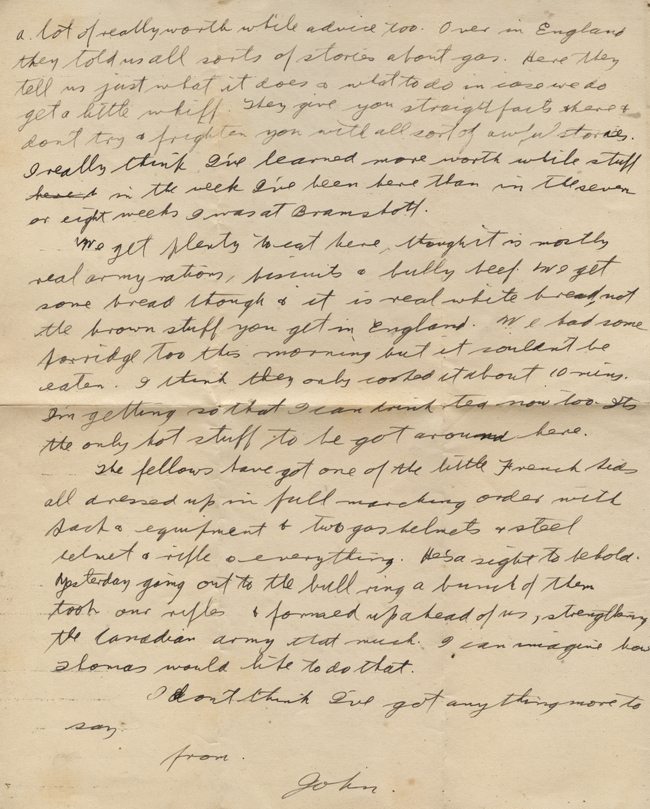 a lot of really worth while advice too. Over in England
they told us all sorts of stories about gas. Here they
tell us just what it does & what to do in case we do
get a little whiff. They give you straight facts here &
don't try & frighten you with all sort of awful stories.
I really think I've learned more worth while stuff
here t in the week I've been here than in the seven
or eight weeks I was at Bramshott.
We get plenty to eat here, though it is mostly
real army rations, biscuits & bully beef. We get
some bread though & it is real white bread, not
the brown stuff you get in England. We had some
porridge too this morning but it couldn't be
eaten. I think they only cooked it about 10 mins.
I'm getting so that I can drink tea now too. Its
the only hot stuff to be got around here.
The fellows have got one of the little French kids
all dressed up in full marching order with
pack & equipment & two gas helmets & steel
helmet & rifle & everything. He's a sight to behold.
Yesterday going out to the bull ring a bunch of them
took our rifles & formed up ahead of us, strengthening
the Canadian army that much. I can imagine how
Thomas would like to do that.
I don't think I've got anything more to
say.
from.
John.